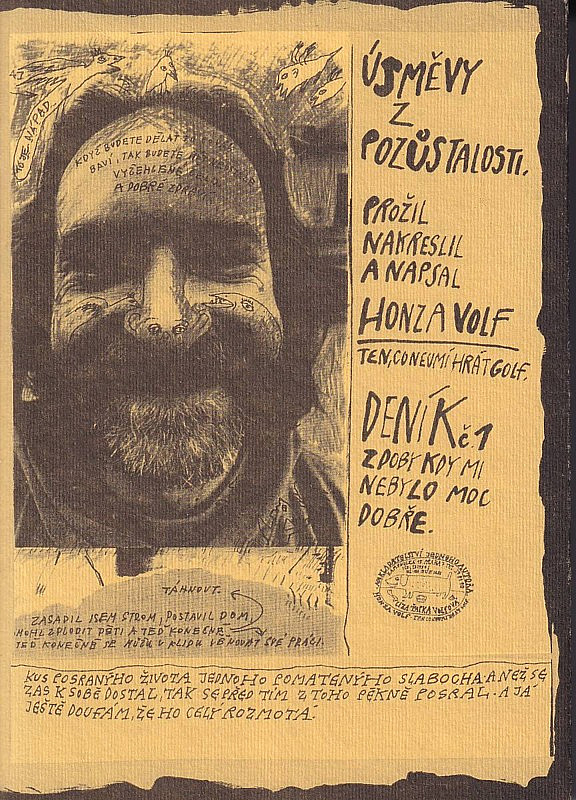 ÚSMĚVY
Z
POZŮSTALOSTI.
PROŽIL
NAKRESLIL
A NAPSAL
HONZA VOLF
TEN, CO NEUMÍ HRÁT GOLF.
DENÍK č.1
Z DOBY KDY MI
NEBYLO MOC
DOBŘE.
NAKLADATELSTVÍ JEDNOHO AUTORA
LÍZA PACKA VOLFOVÁ
HONZA VOLF
TO JE NÁPAD
KDYŽ BUDETE DĚLAT
BAVÍ, TAK BUDETE
VYŽEHLENÉ ČELO
A DOBRÉ ZDRAVÍ
TÁHNOUT.
ZASADIL JSEM STROM, POSTAVIL DOM,
MOHL ZPLODIT DĚTI A TEĎ KONEČNĚ
TEĎ KONEČNĚ SE MŮŽU V KLIDU VĚNOVAT SVÉ PRÁCI.
KUS POSRANÝHO ŽIVOTA JEDNOHO POMATENÝHO SLABOCHA. A NEŽ SE
ZAS K SOBĚ DOSTAL, TAK SE PŘED TÍM Z TOHO PĚKNĚ POSRAL. A JÁ
JEŠTĚ DOUFÁM, ŽE HO CELÝ ROZMOTÁ.